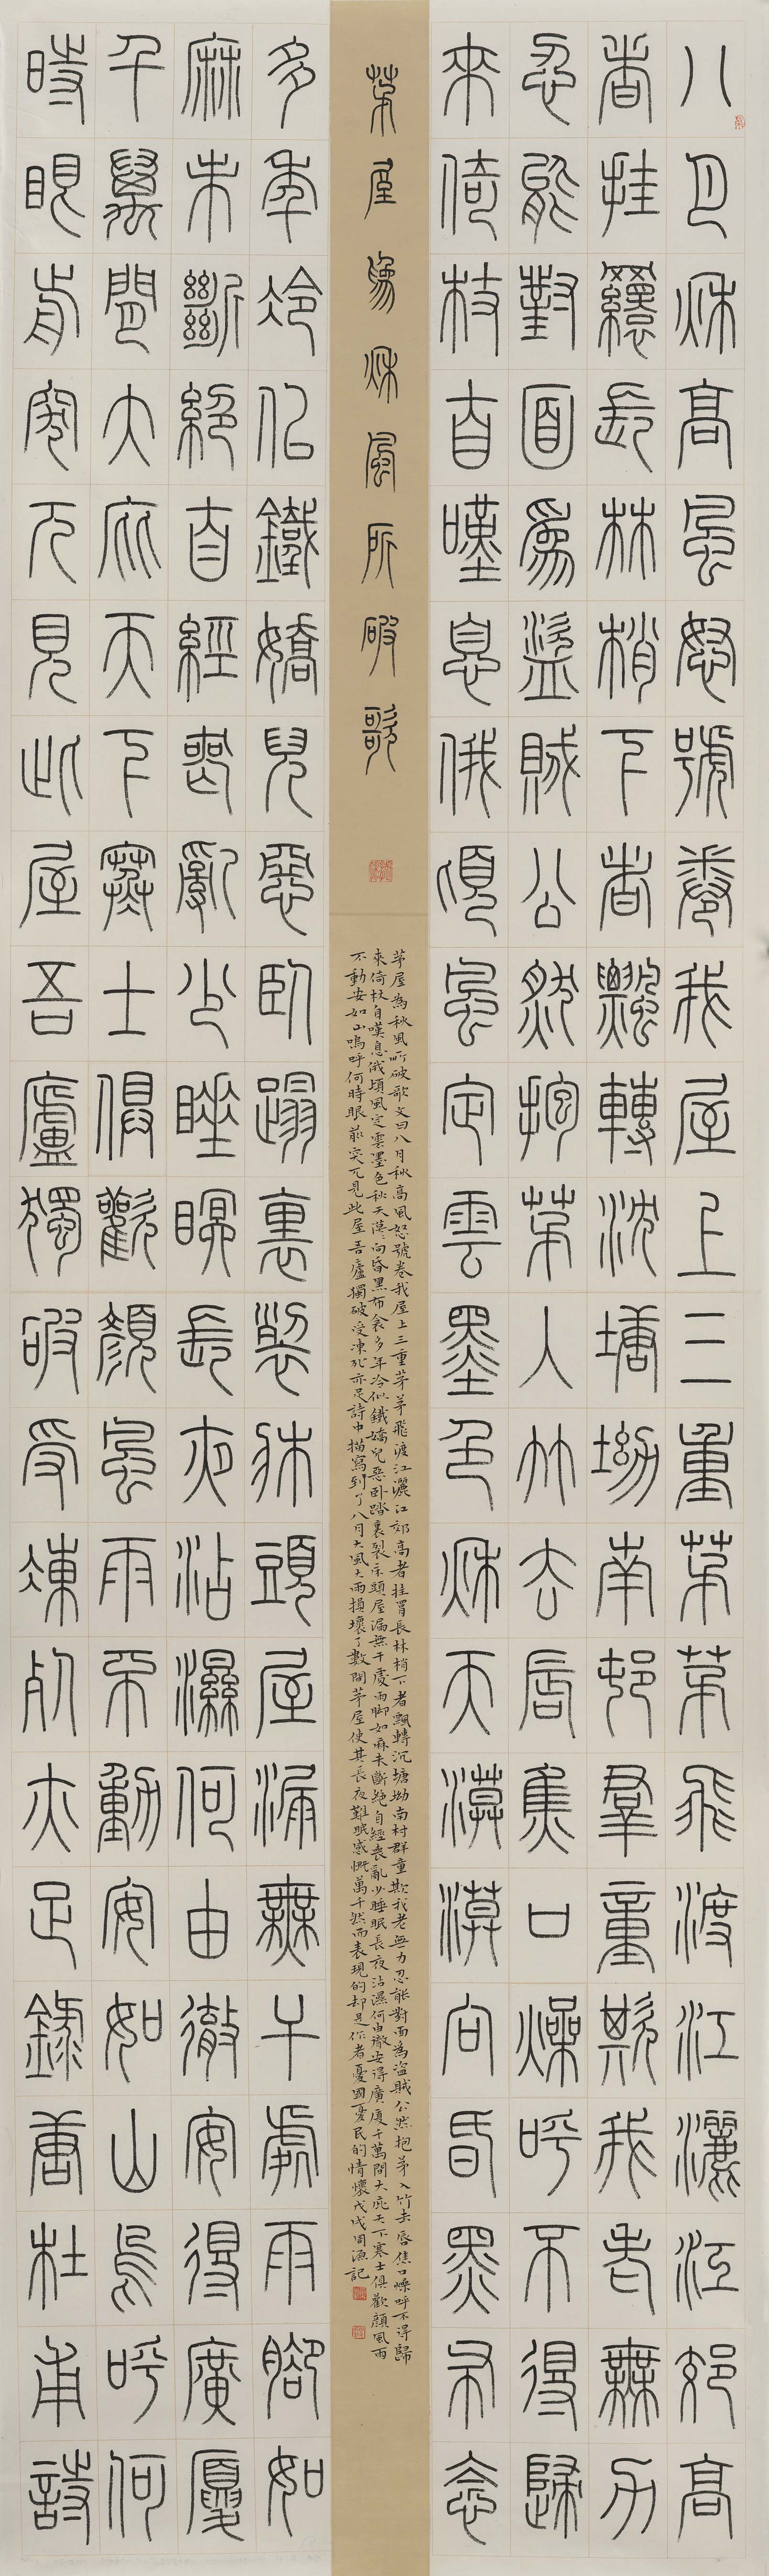 八月秋高風怒號卷我屋上三重茅茅飛渡江灑江郊高
者挂罥長林梢下者飄轉沈塘坳南村羣童欺我老無力
忍能對面為盜賊公然抱茅入竹去唇焦口燥呼不得歸
來倚杖自嘆息俄頃風定雲墨色秋天漠漠向昏黑布衾
茅屋為秋風所破歌
茅屋為秋風所破歌文曰八月秋高風怒號卷我屋上三重茅茅飛渡江灑江郊高者挂罥長林梢下者飄轉沉塘坳南村群童欺我老無力忍能對面為盜賊公然抱茅入竹去唇焦口燥呼不得歸
來倚杖自嘆息俄頃風定雲墨色秋天漠〻向昏黑布衾多年冷似鐵嬌兒惡卧踏裏裂床頭屋漏無干處雨脚如麻未斷絕自經喪亂少睡眠長夜沾濕何由徹安得廣廈千萬間大庇天下寒士俱歡顏風雨
不動安如山嗚呼何時眼前突兀見此屋吾廬獨破受凍死亦足詩中描寫到了八月大風大雨損壞了數間茅屋使其長夜難眠感慨萬千然而表現的却是作者憂國憂民的情懷戊戌周漁記
多年冷似鐵嬌兒惡臥蹋裏裂牀頭屋漏無干處雨腳如
麻未斷絕自經喪亂少睡瞑長夜沾濕何由徹安得廣廈
千萬間大庇天下寒士俱歡顏風雨不動安如山烏呼何
時眼前突兀見此屋吾廬獨破受凍死亦足錄唐杜甫詩